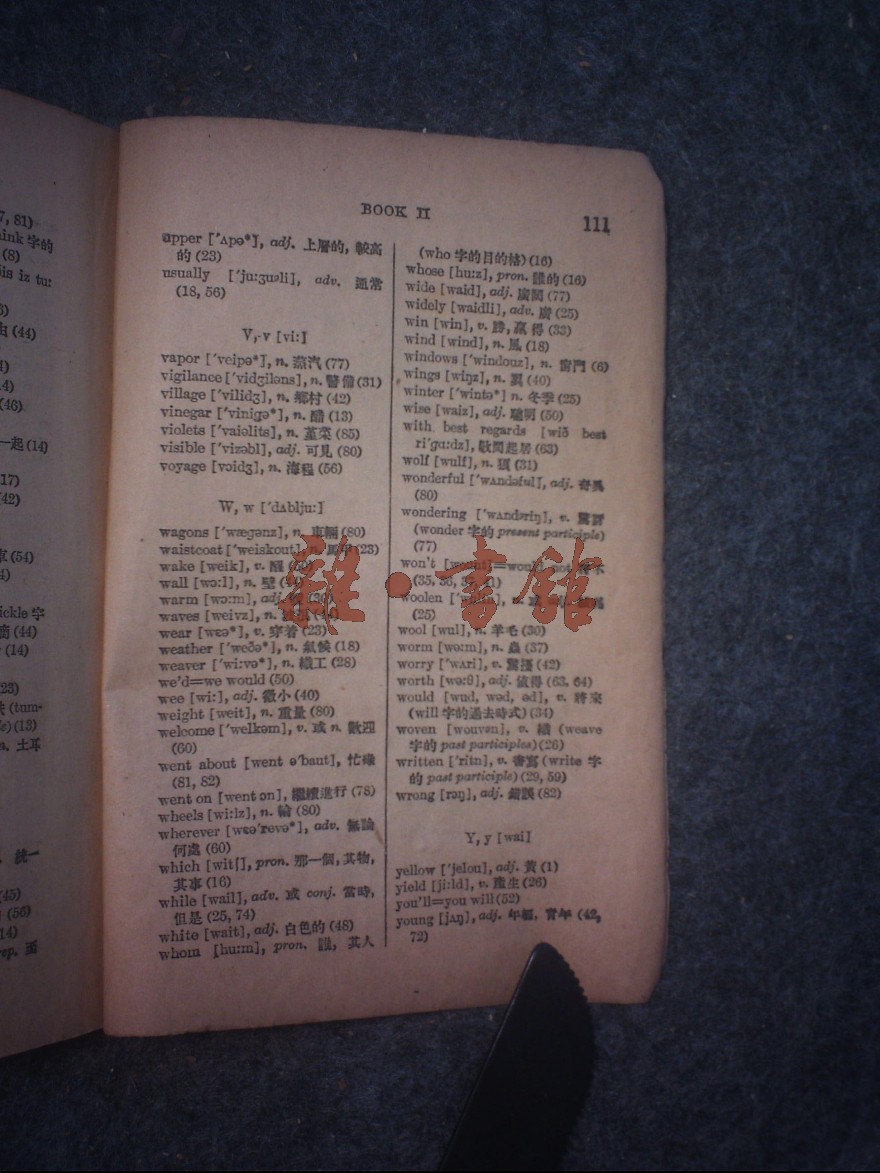 7, 81)
ink 字的
(8)
is iz tu:
由 (44)
4)
(46)
一起 (14)
17)
(42)
車 (54)
4)
ickle 字
(44)
(14)
23)
(tum-
(13)
n. 土耳
統一
(45)
(56)
14)
rep. 而
BOOK II
111
upper ['ʌpə*], adj. 上層的, 較高
的 (23)
usually ['ju:ʒuəli], adv. 通常
(18, 56)
V, v [vi:]
vapor ['veipə*], n. 蒸汽 (77)
vigilance ['vidʒiləns], n. 警備 (31)
village ['vilidʒ], n. 鄉村 (42)
vinegar ['vinigə*], n. 醋 (13)
violets ['vaiəlits], n. 堇菜 (85)
visible ['vizəbl], adj. 可見 (80)
voyage [vɔidʒ], n. 海程 (56)
W, w ['dʌblju:]
wagons ['wægənz], n. 車輛 (80)
waistcoat ['weiskout], n. 馬甲 (23)
wake [weik], v. 醒
wall [wɔ:l], n. 壁
warm [wɔ:m], adj.
waves [weivz], n.
wear [wɛə*], v. 穿着 (23)
weather ['weðə*], n. 氣候 (18)
weaver ['wi:və*], n. 織工 (28)
we'd=we would (50)
wee [wi:], adj. 微小 (40)
weight [weit], n. 重量 (80)
welcome ['welkəm], v. 或 n. 歡迎
(60)
went about [went ə'baut], 忙碌
(81, 82)
went on [went on], 繼續進行 (78)
wheels [wi:lz], n. 輪 (80)
wherever [wɛə'revə*], adv. 無論
何處 (60)
which [witʃ], pron. 那一個, 其物,
其事 (16)
while [wail], adv. 或 conj. 當時,
但是 (25, 74)
white [wait], adj. 白色的 (48)
whom [hu:m], pron. 誰, 其人
(who 字的目的格) (16)
whose [hu:z], pron. 誰的 (16)
wide [waid], adj. 廣闊 (77)
widely [waidli], adv. 廣 (25)
win [win], v. 勝, 贏得 (33)
wind [wind], n. 風 (18)
windows ['windouz], n. 窗門 (6)
wings [wiŋz], n. 翼 (40)
winter ['wintə*] n. 冬季 (25)
wise [waiz], adj. 聰明 (50)
with best regards [wið best
ri'gɑ:dz], 敬問起居 (63)
wolf [wulf], n. 狼 (31)
wonderful ['wʌndəful], adj. 奇異
(80)
wondering ['wʌndəriŋ], v. 驚訝
(wonder 字的 present participle)
(77)
won't [wount]=would not
(35, 36,
woolen
(25)
wool [wul], n. 羊毛 (30)
worm [wə:m], n. 蟲 (37)
worry ['wʌri], v. 驚擾 (42)
worth [wə:θ], adj. 值得 (63, 64)
would [wud, wəd, əd], v. 將來
(will 字的過去時式) (34)
woven [wouvən], v. 織 (weave
字的 past participles) (26)
written ['ritn], v. 書寫 (write 字
的 past participle) (29, 59)
wrong [rɔŋ], adj. 錯誤 (82)
Y, y [wai]
yellow ['jelou], adj. 黃 (1)
yield [ji:ld], v. 產生 (26)
you'll=you will (52)
young [jʌŋ], adj. 年輕, 青年 (42,
72)
雜·書館